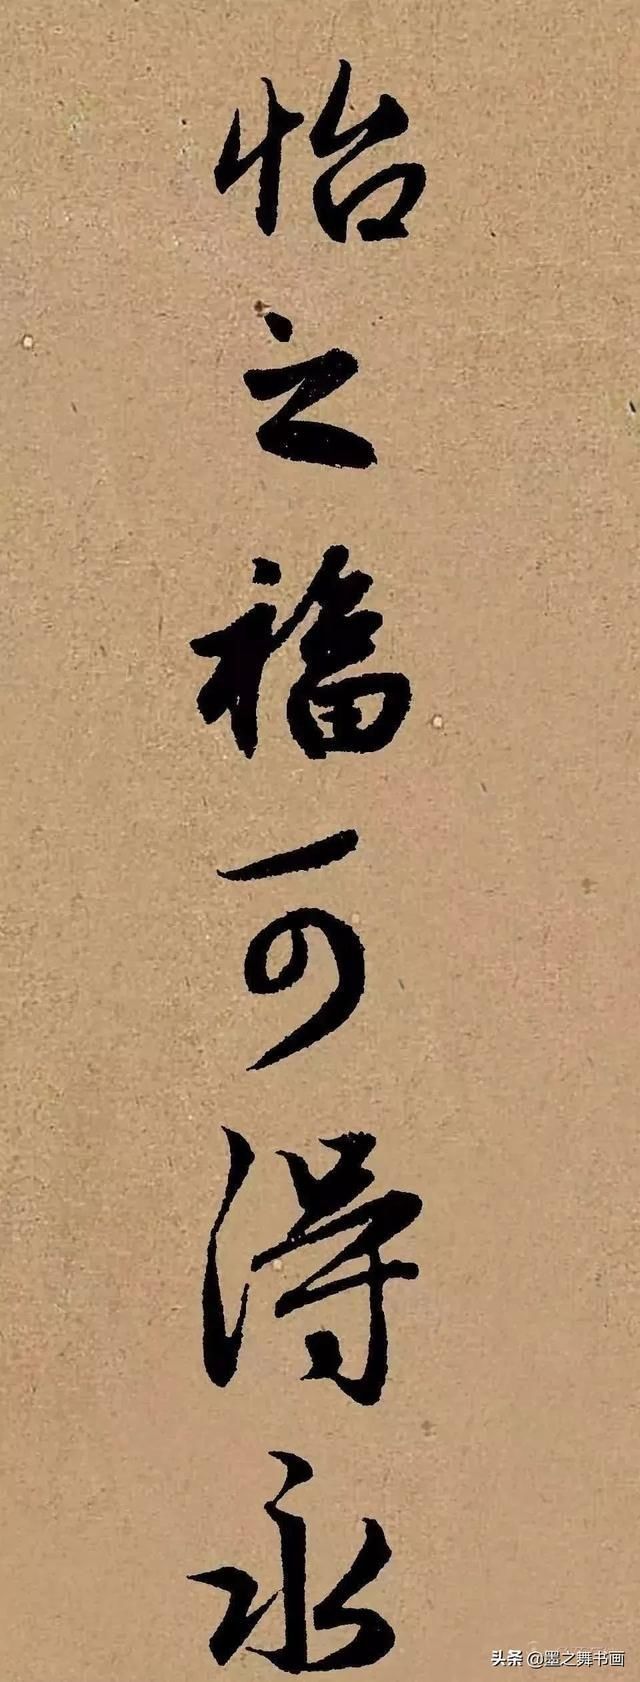 怡之福可得永
头条 @墨之舞书画